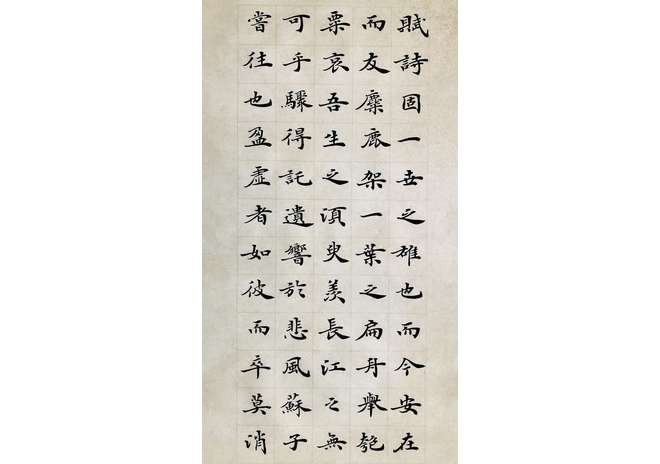 賦詩固一世之雄也而今安在
而友麋鹿架一葉之扁舟舉匏
粟哀吾生之須臾羨長江之無
可乎驟得託遺響於悲風蘇子
嘗往也盈虛者如彼而卒莫消